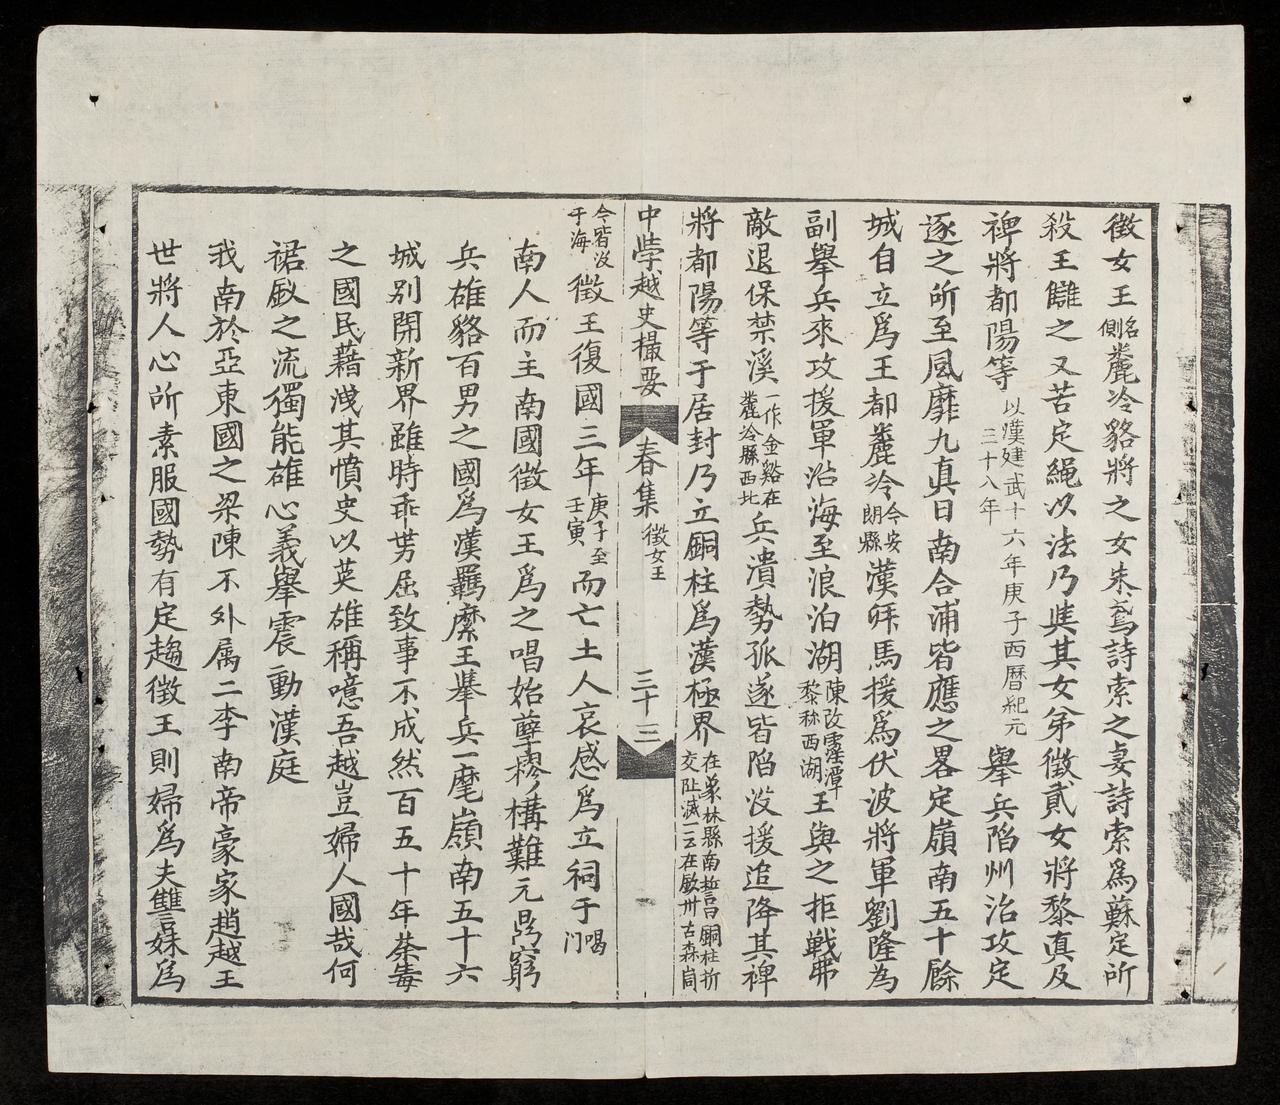 徵女王名側麊冷貉將之女朱鳶詩索之妻詩索爲蘇定所
殺王讎之又苦定繩以法乃與其女弟徵貳女將黎眞及
裨將都陽等以漢建武十六年庚子西曆紀元三十八年舉兵陷州治攻定
逐之所至風靡九眞日南合浦皆應之畧定嶺南五十餘
城自立爲王都麊冷今安朗縣漢拜馬援爲伏波將軍劉隆为
副舉兵來攻援軍沿海至浪泊湖陳改雲潭黎称西湖王與之拒戰弗
敵退保禁溪一作金谿在麊冷縣西北兵潰勢孤遂皆陷没援追降其裨
將都陽等于居封乃立銅柱爲漢極界在象林縣南誓曰銅柱折交趾滅一云在欽州古森峝
中學越史撮要 春集 徵女王 三十三
今皆没于海徵王復國三年庚子至壬寅而亡土人哀感爲立祠于喝门
南人而主南國徵女王爲之唱始孽樛構難元㐫窮
兵雄貉百男之國爲漢羈縻王舉兵一麾嶺南五十六
城別開新界雖時乖势屈致事不成然百五十年荼毒
之國民藉洩其憤史以英雄稱噫吾越豈婦人國哉何
裙釵之流獨能雄心義舉震動漢庭
我南於亞東國之梁陳不外属二李南帝豪家趙越王
世將人心所素服國勢有定趨徵王則婦爲夫讐妹爲